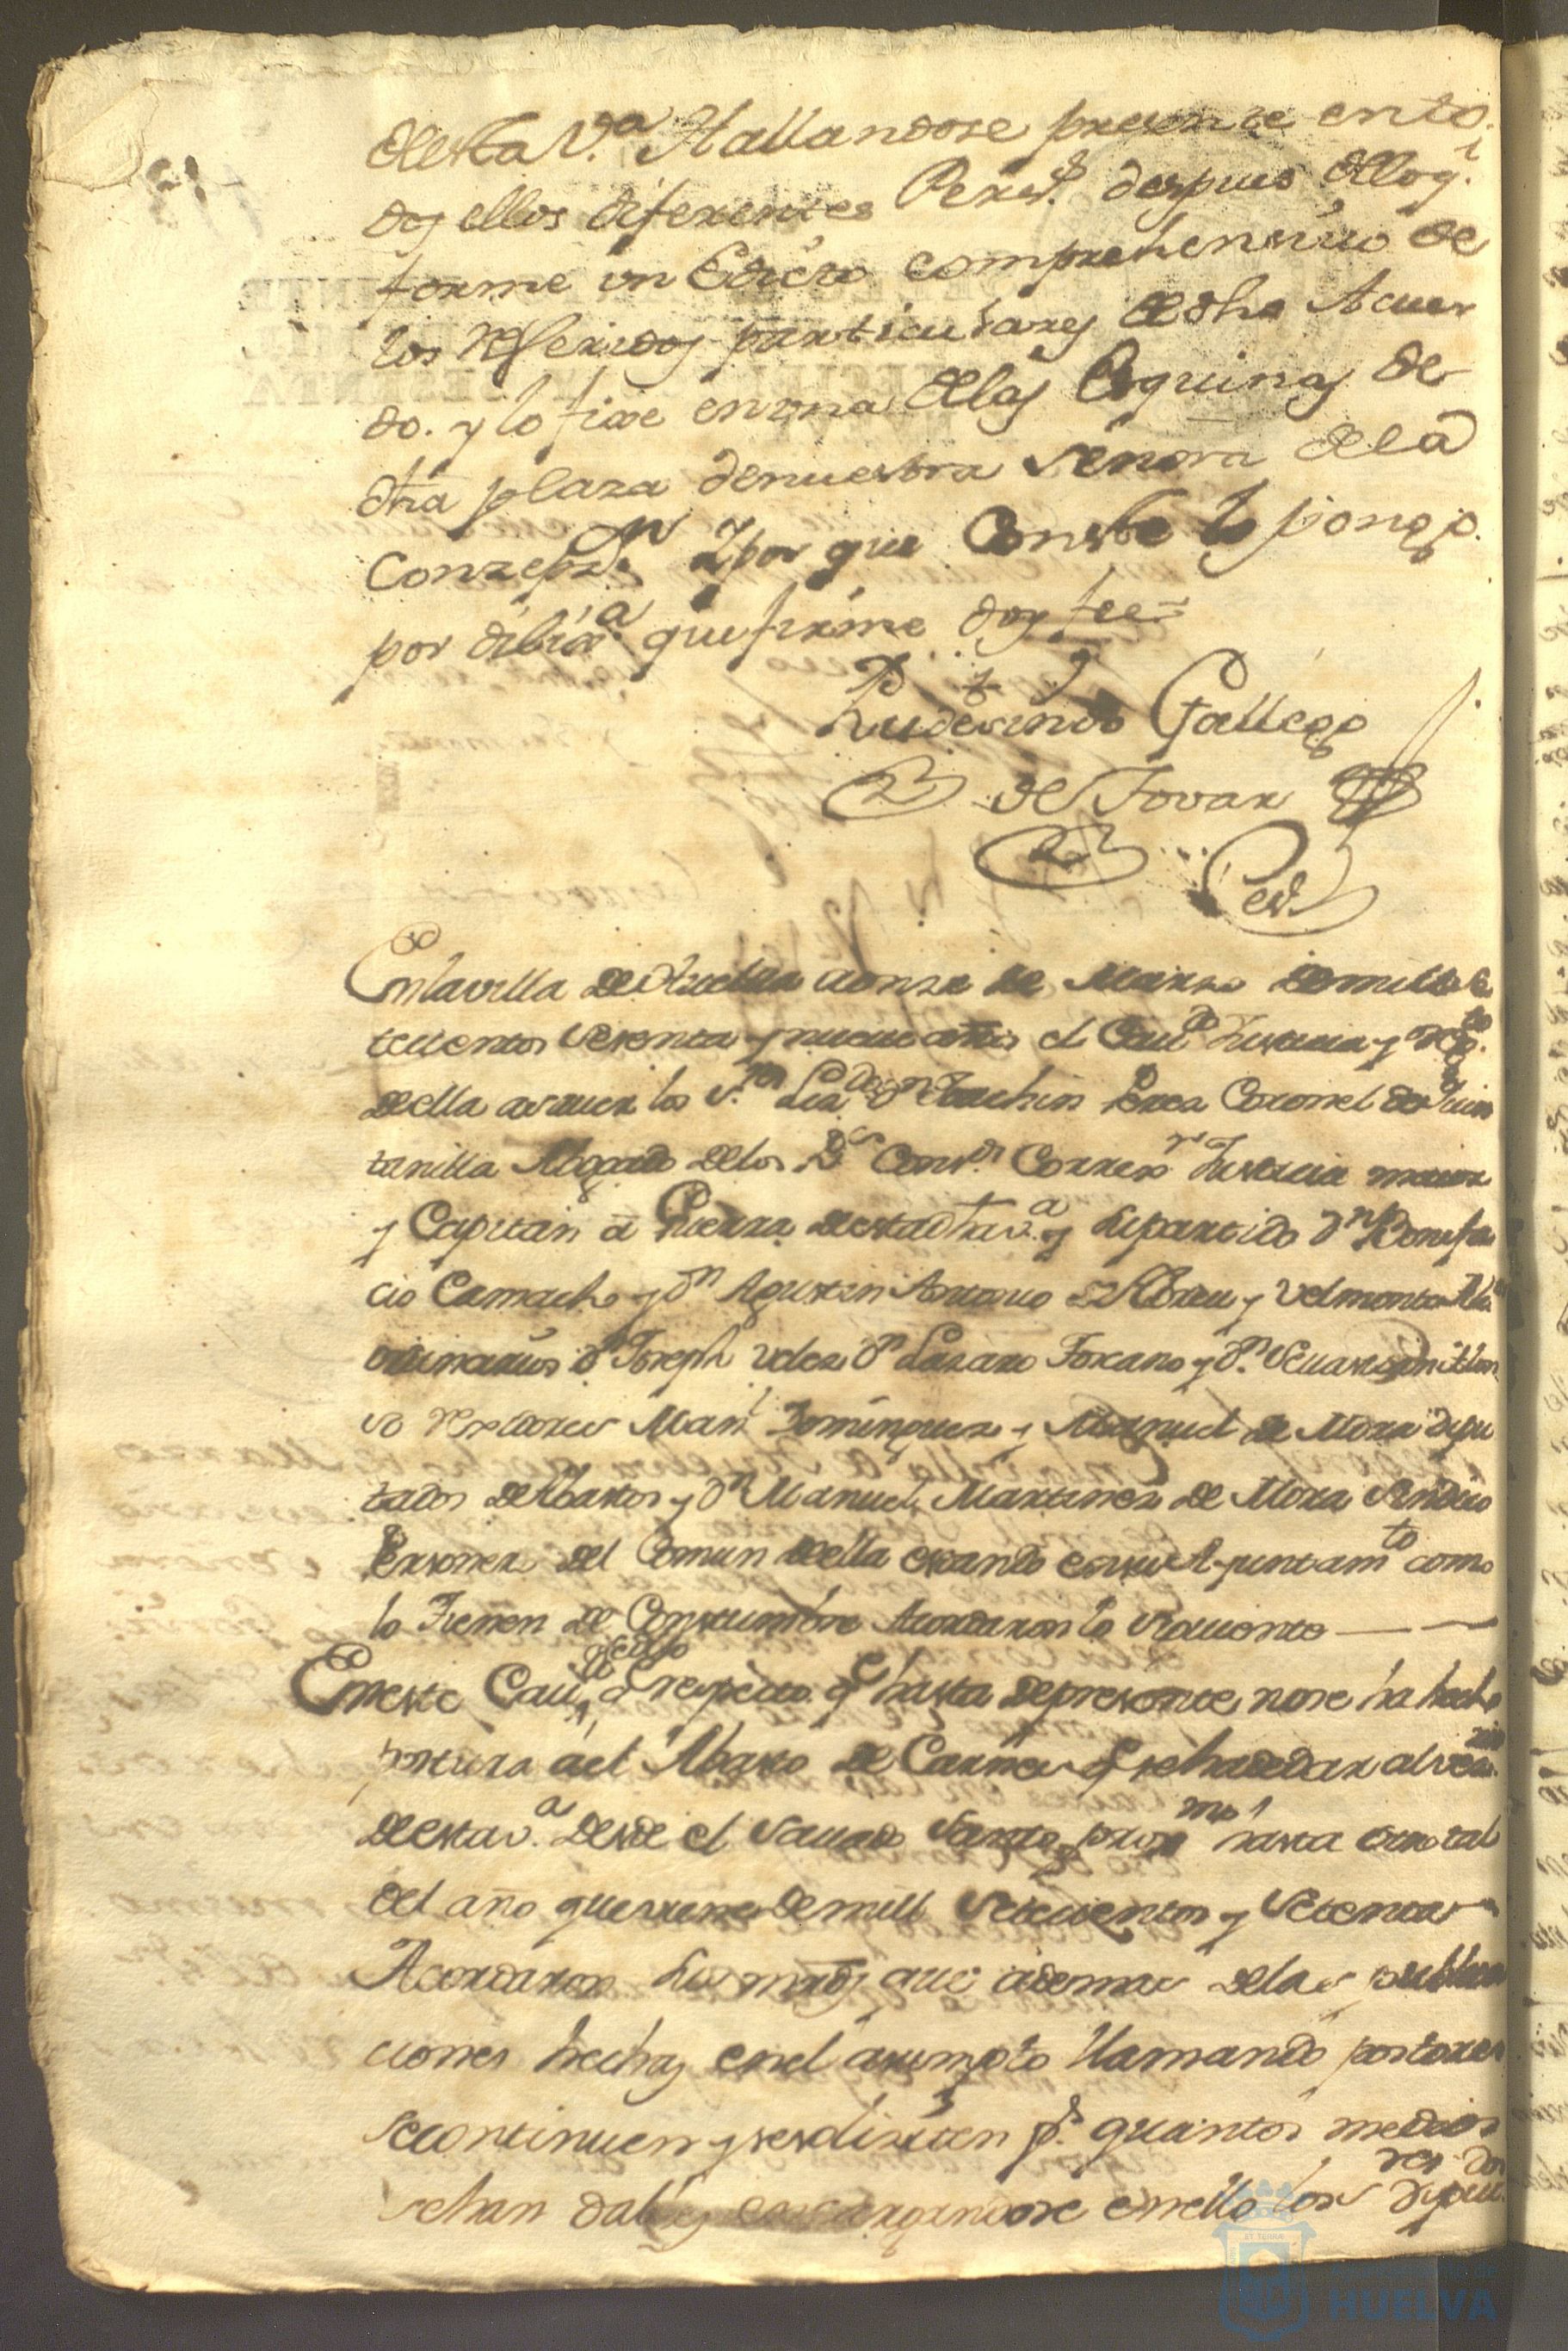 desta V.ª Hallandose presente ento
dos ellos diferentes Pers.s despues de lo q.l
forme un Edicto comprehensivo de
los referidos particulares de dho Acuer
do. y lo fixe en una de las Esquinas de
dha plaza de nuestra Señora de la
Conzepz.n Y por que Conste lo pongo
por dilix.a que firme doy fee=
Rudesindo Gallego
de Tovar
es.no
En la villa de Huelva a onze de Marzo de mill se
tecientos sesenta y nueve años el Cav.do Justicia y Reg.to
della a saver los S.res Lizd.o D.n Joachin Perea Coronel de Quin
tanilla Abogado de los R.s Cons.s Correx.r Justicia maior
y Capitan a Guerra desta dha v.a y su partido D.n Bonifa
cio Camacho y D.n Agustin Antonio de Abreu y Velmonte Alc.s
ordinarios D.n Joseph Velez D.n Lazaro Forcano y D.n Sevastian
Rexidores Man.l Dominguez y Manuel de Mora dipu
tados de Abastos y D.n Manuel Martinez de Mora Sindico
Personero del Comun della estando en su Ayuntam.to como
lo tienen de Constumbre Acordaron lo siguiente
En este Cav.do se dijo q.e respecto q.e hasta de presente no se ha hecho
postura a el Abasto de Carnes q.e se ha de dar al vecin.o
desta v.a desde el Savado Santo prox.mo hasta otro tal
del año que viene de mill setecientos y setenta
Acordaron sus mrds que ademas de las publica
ciones hechas en el asumpto llamando postores
se continuen y se soliciten p.r quantos medios
sehan dables encargandose en ello los S.res Diput.dos
HUELVA